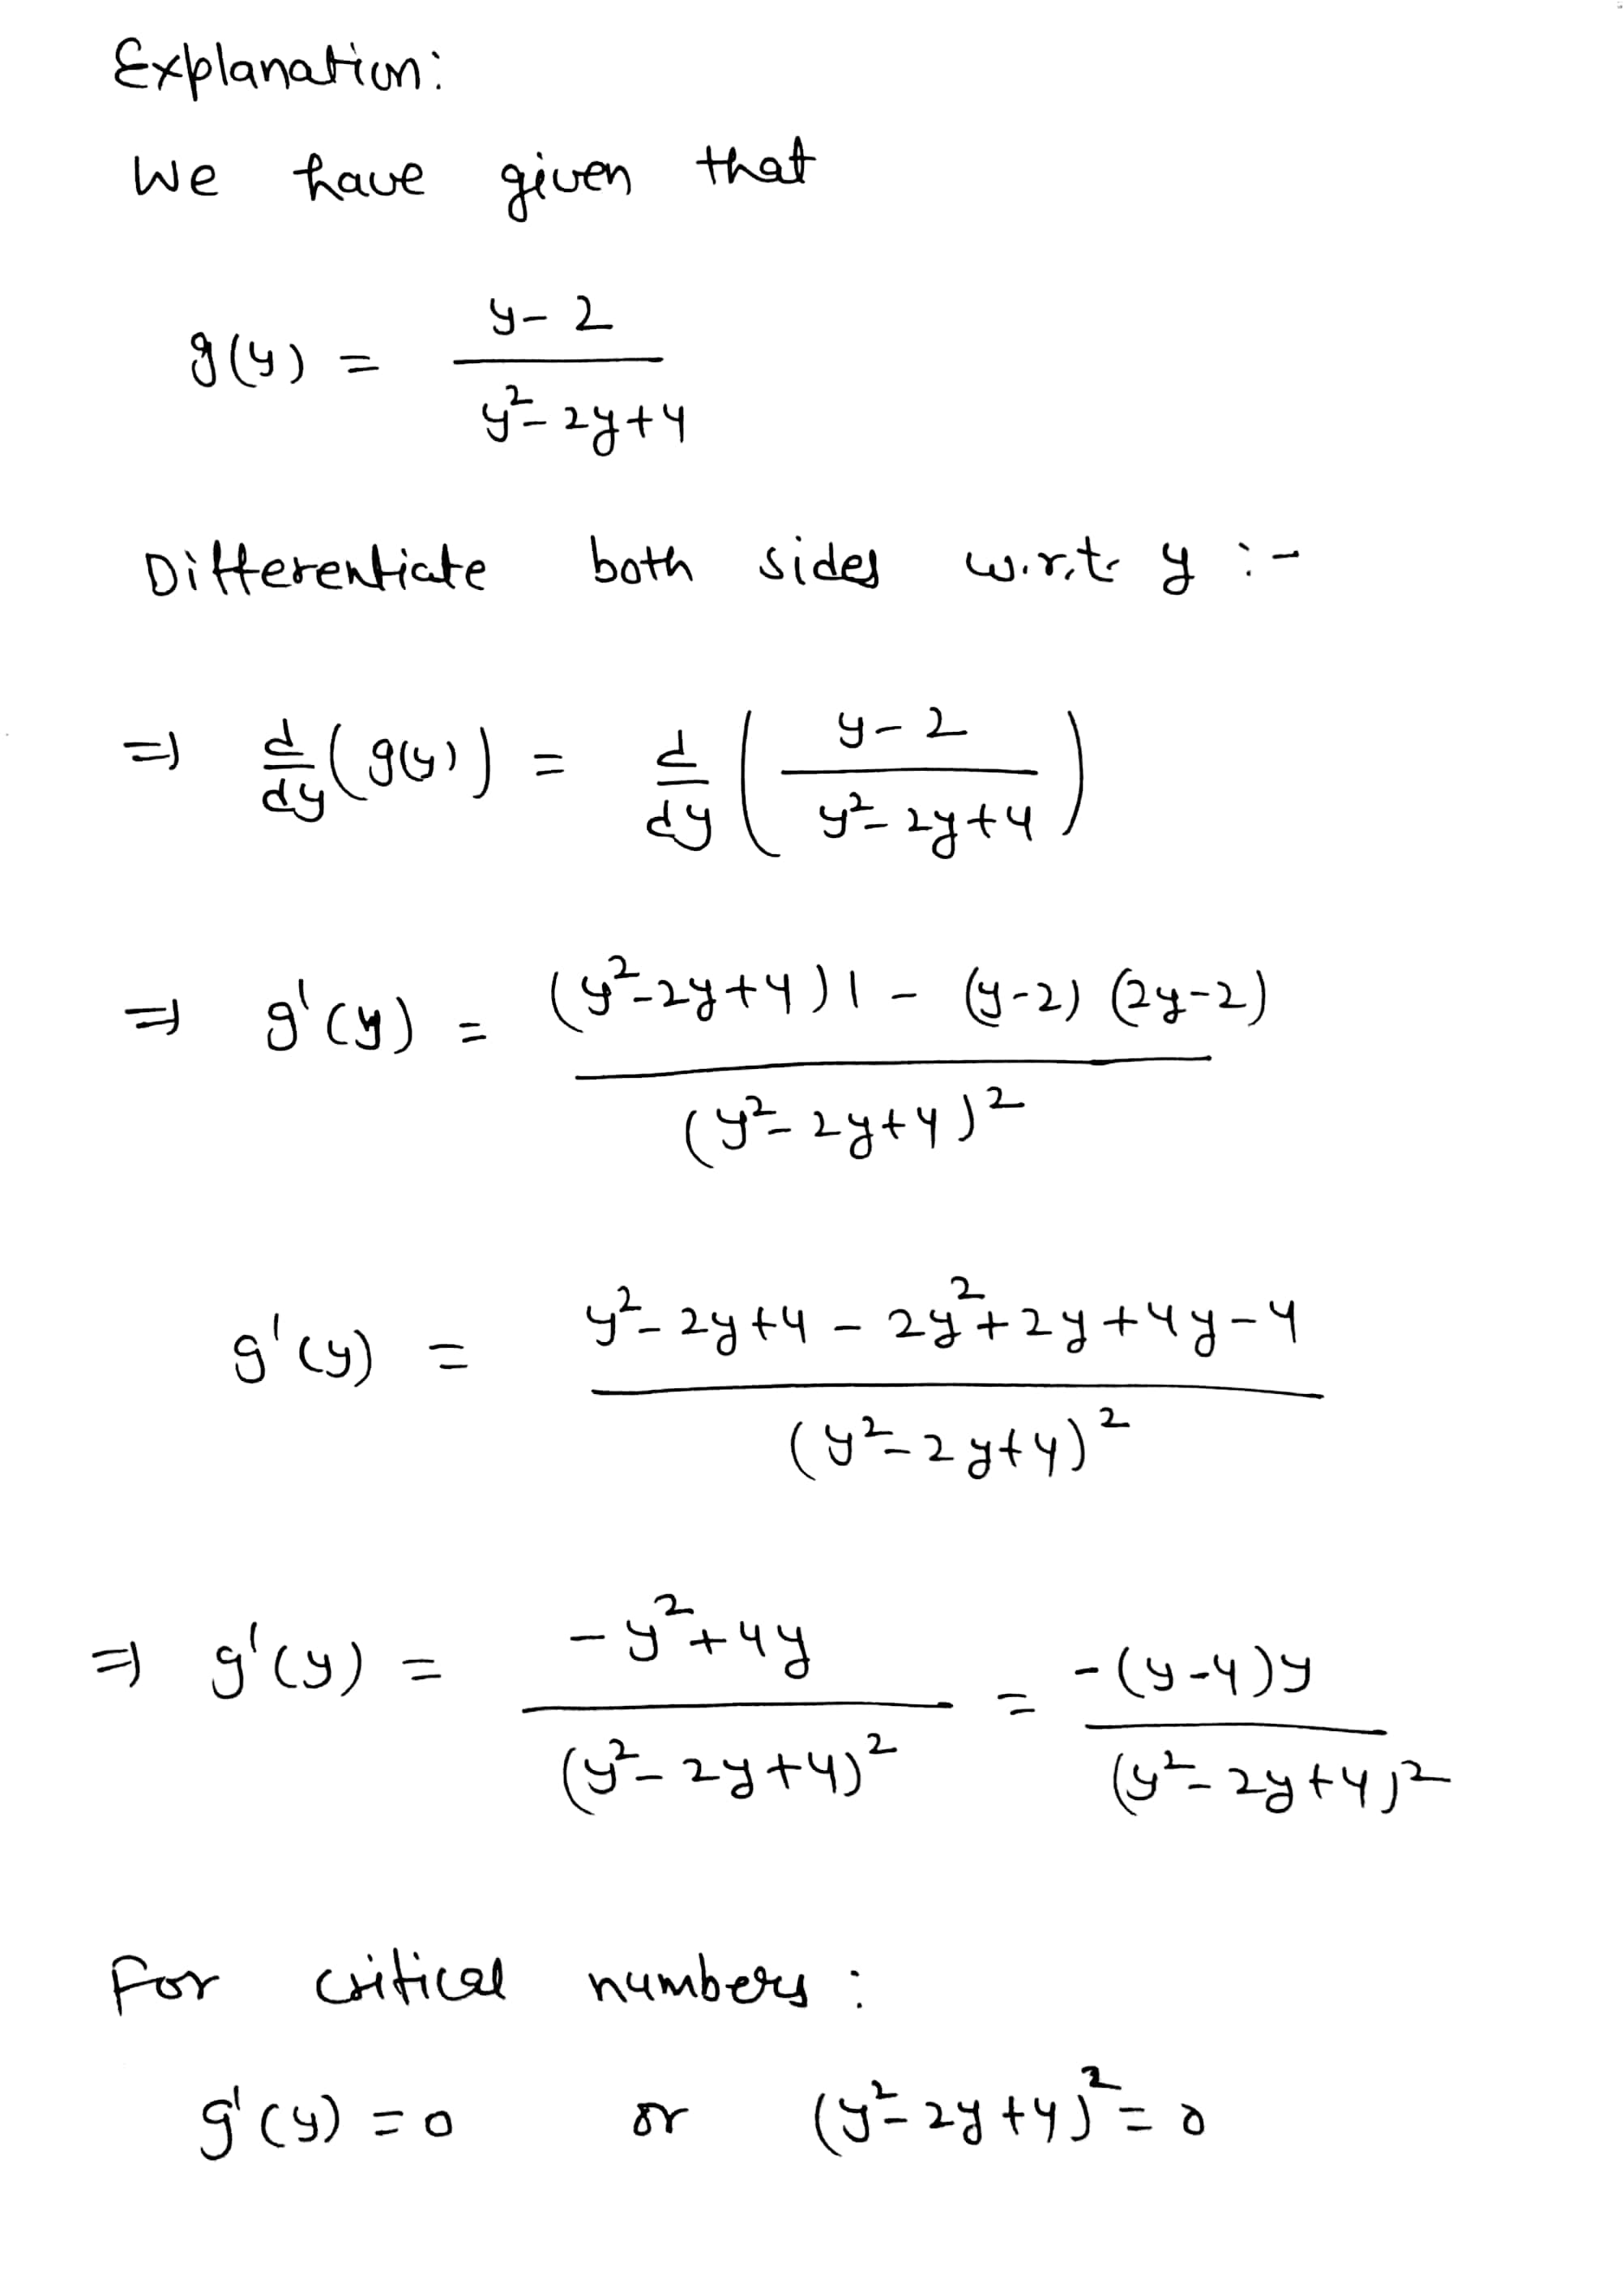 Explanation:
We have given that
g(y) = (y-2)/(y²-2y+4)
Differentiate both sides w.r.t. y :-
⇒ d/dy (g(y)) = d/dy ((y-2)/(y²-2y+4))
⇒ g'(y) = ((y²-2y+4)1 - (y-2)(2y-2))/(y²-2y+4)²
g'(y) = (y²-2y+4-2y²+2y+4y-4)/(y²-2y+4)²
⇒ g'(y) = (-y²+4y)/(y²-2y+4)² = (-(y-4)y)/(y²-2y+4)²
For critical numbers :
g'(y) = 0 or (y²-2y+4)² = 0